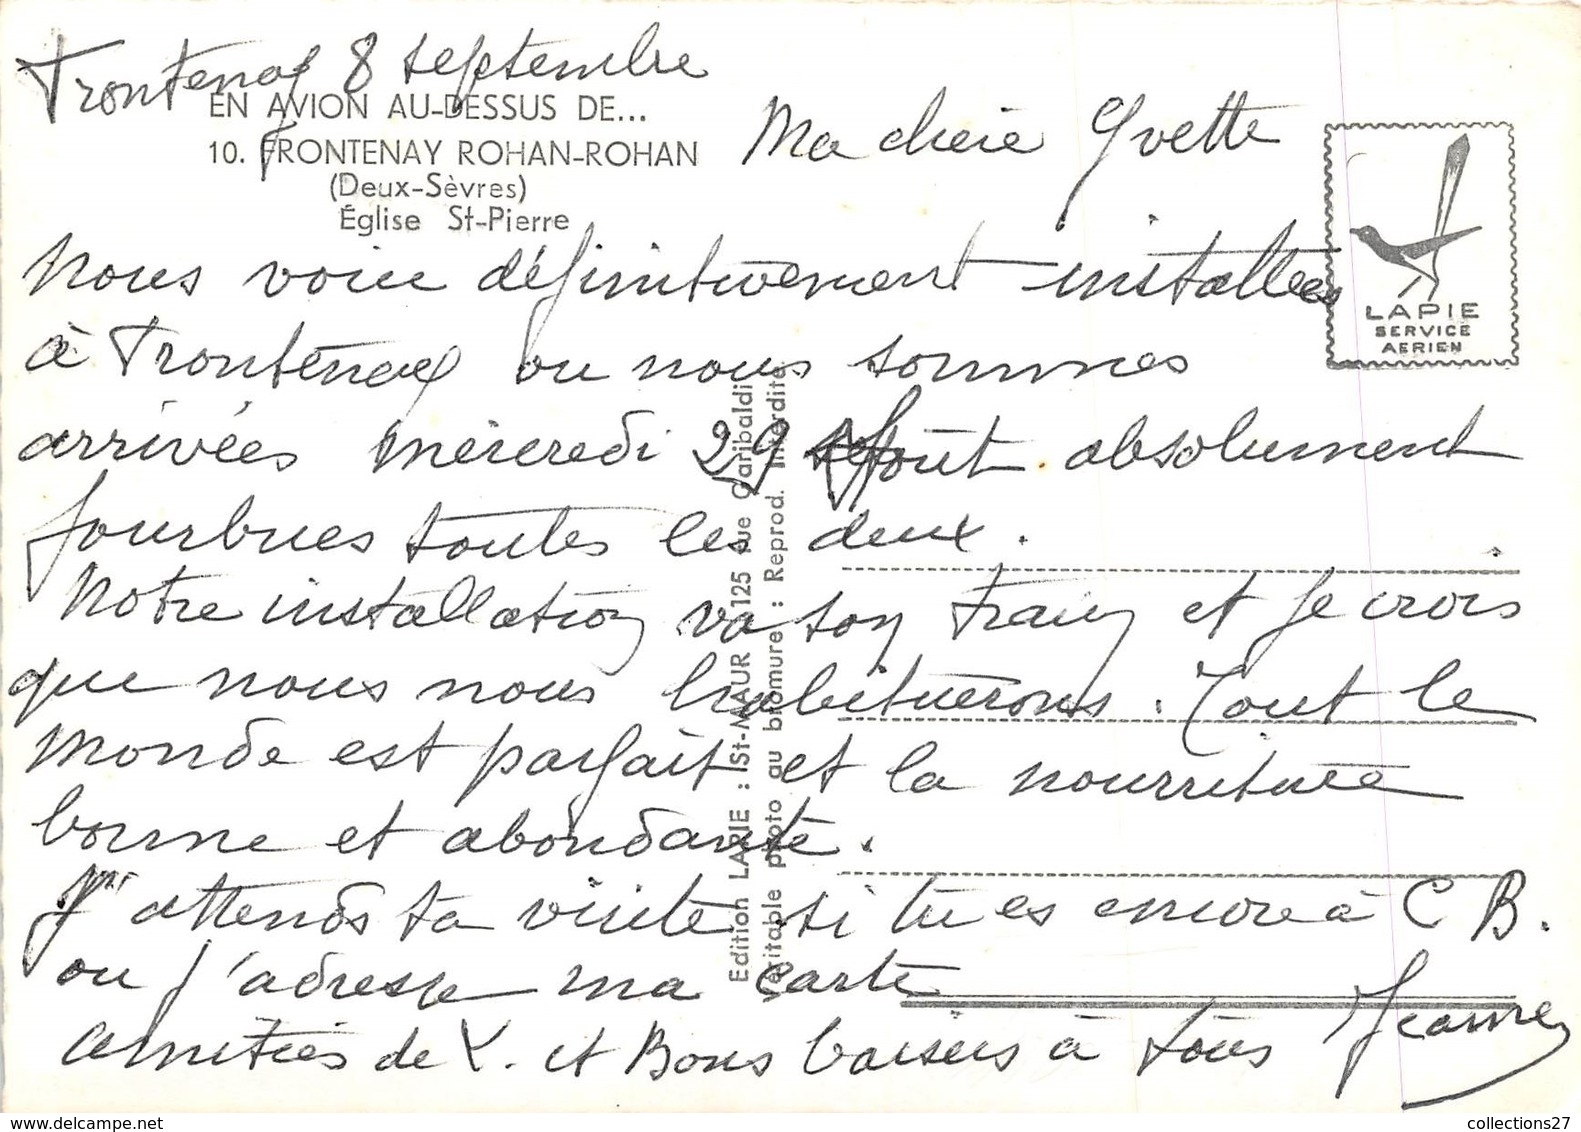 Frontenay 8 septembre
EN AVION AU-DESSUS DE...
10. FRONTENAY ROHAN-ROHAN
(Deux-Sèvres)
Église St-Pierre
Ma chère Yvette
LAPIE
SERVICE
AERIEN
Nous voici définitivement installées
à Frontenay ou nous sommes
arrivées mercredi 29 Août absolument
fourbues toutes les deux.
Notre installation va son train et je crois
que nous nous habituerons. Tout le
monde est parfait et la nourriture
bonne et abondante.
J'attends ta visite si tu es encore à C B.
ou j'adresse ma carte
Amitiés de Y. et Bons baisers à tous Jeanne
Edition LAPIE : St-MAUR 125 rue Garibaldi
Véritable photo au bromure : Reprod. Interdite
collections27